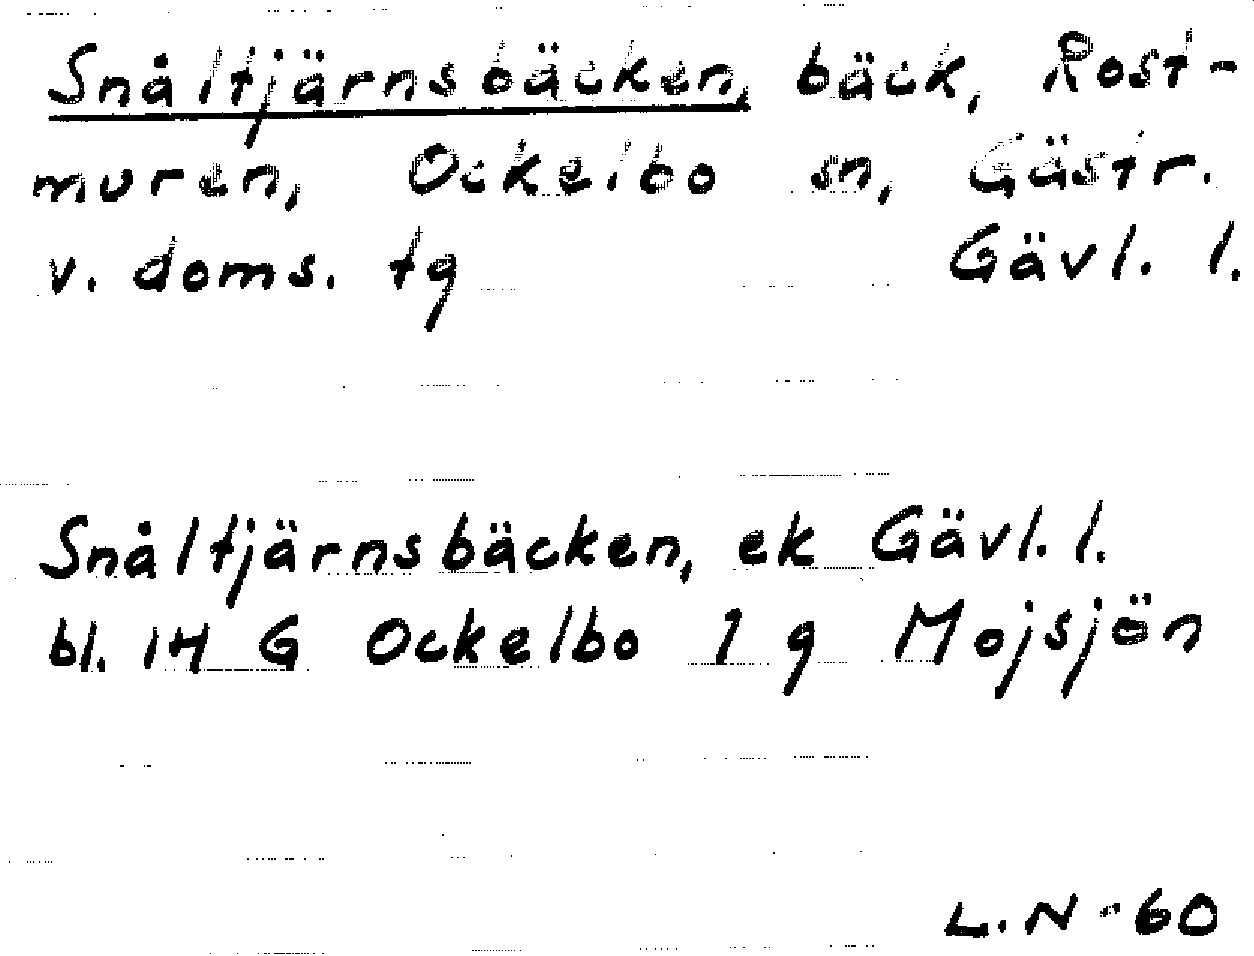 Snåltjärnsbäcken, bäck, Rost-
muren, Ockelbo sn, Gästr.
v. doms. tg Gävl. l.
Snåltjärnsbäcken, ek Gävl. l.
bl. 14 G Ockelbo 1 g Mojsjön
L. N - 60